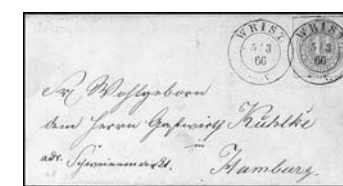 WRIST WRIST
5/3 5/3
66 66
Sr Wohlgeboren
dem Herrn Gastwirth Kuhlke
in
adr. Schweinemarkt. Hamburg.